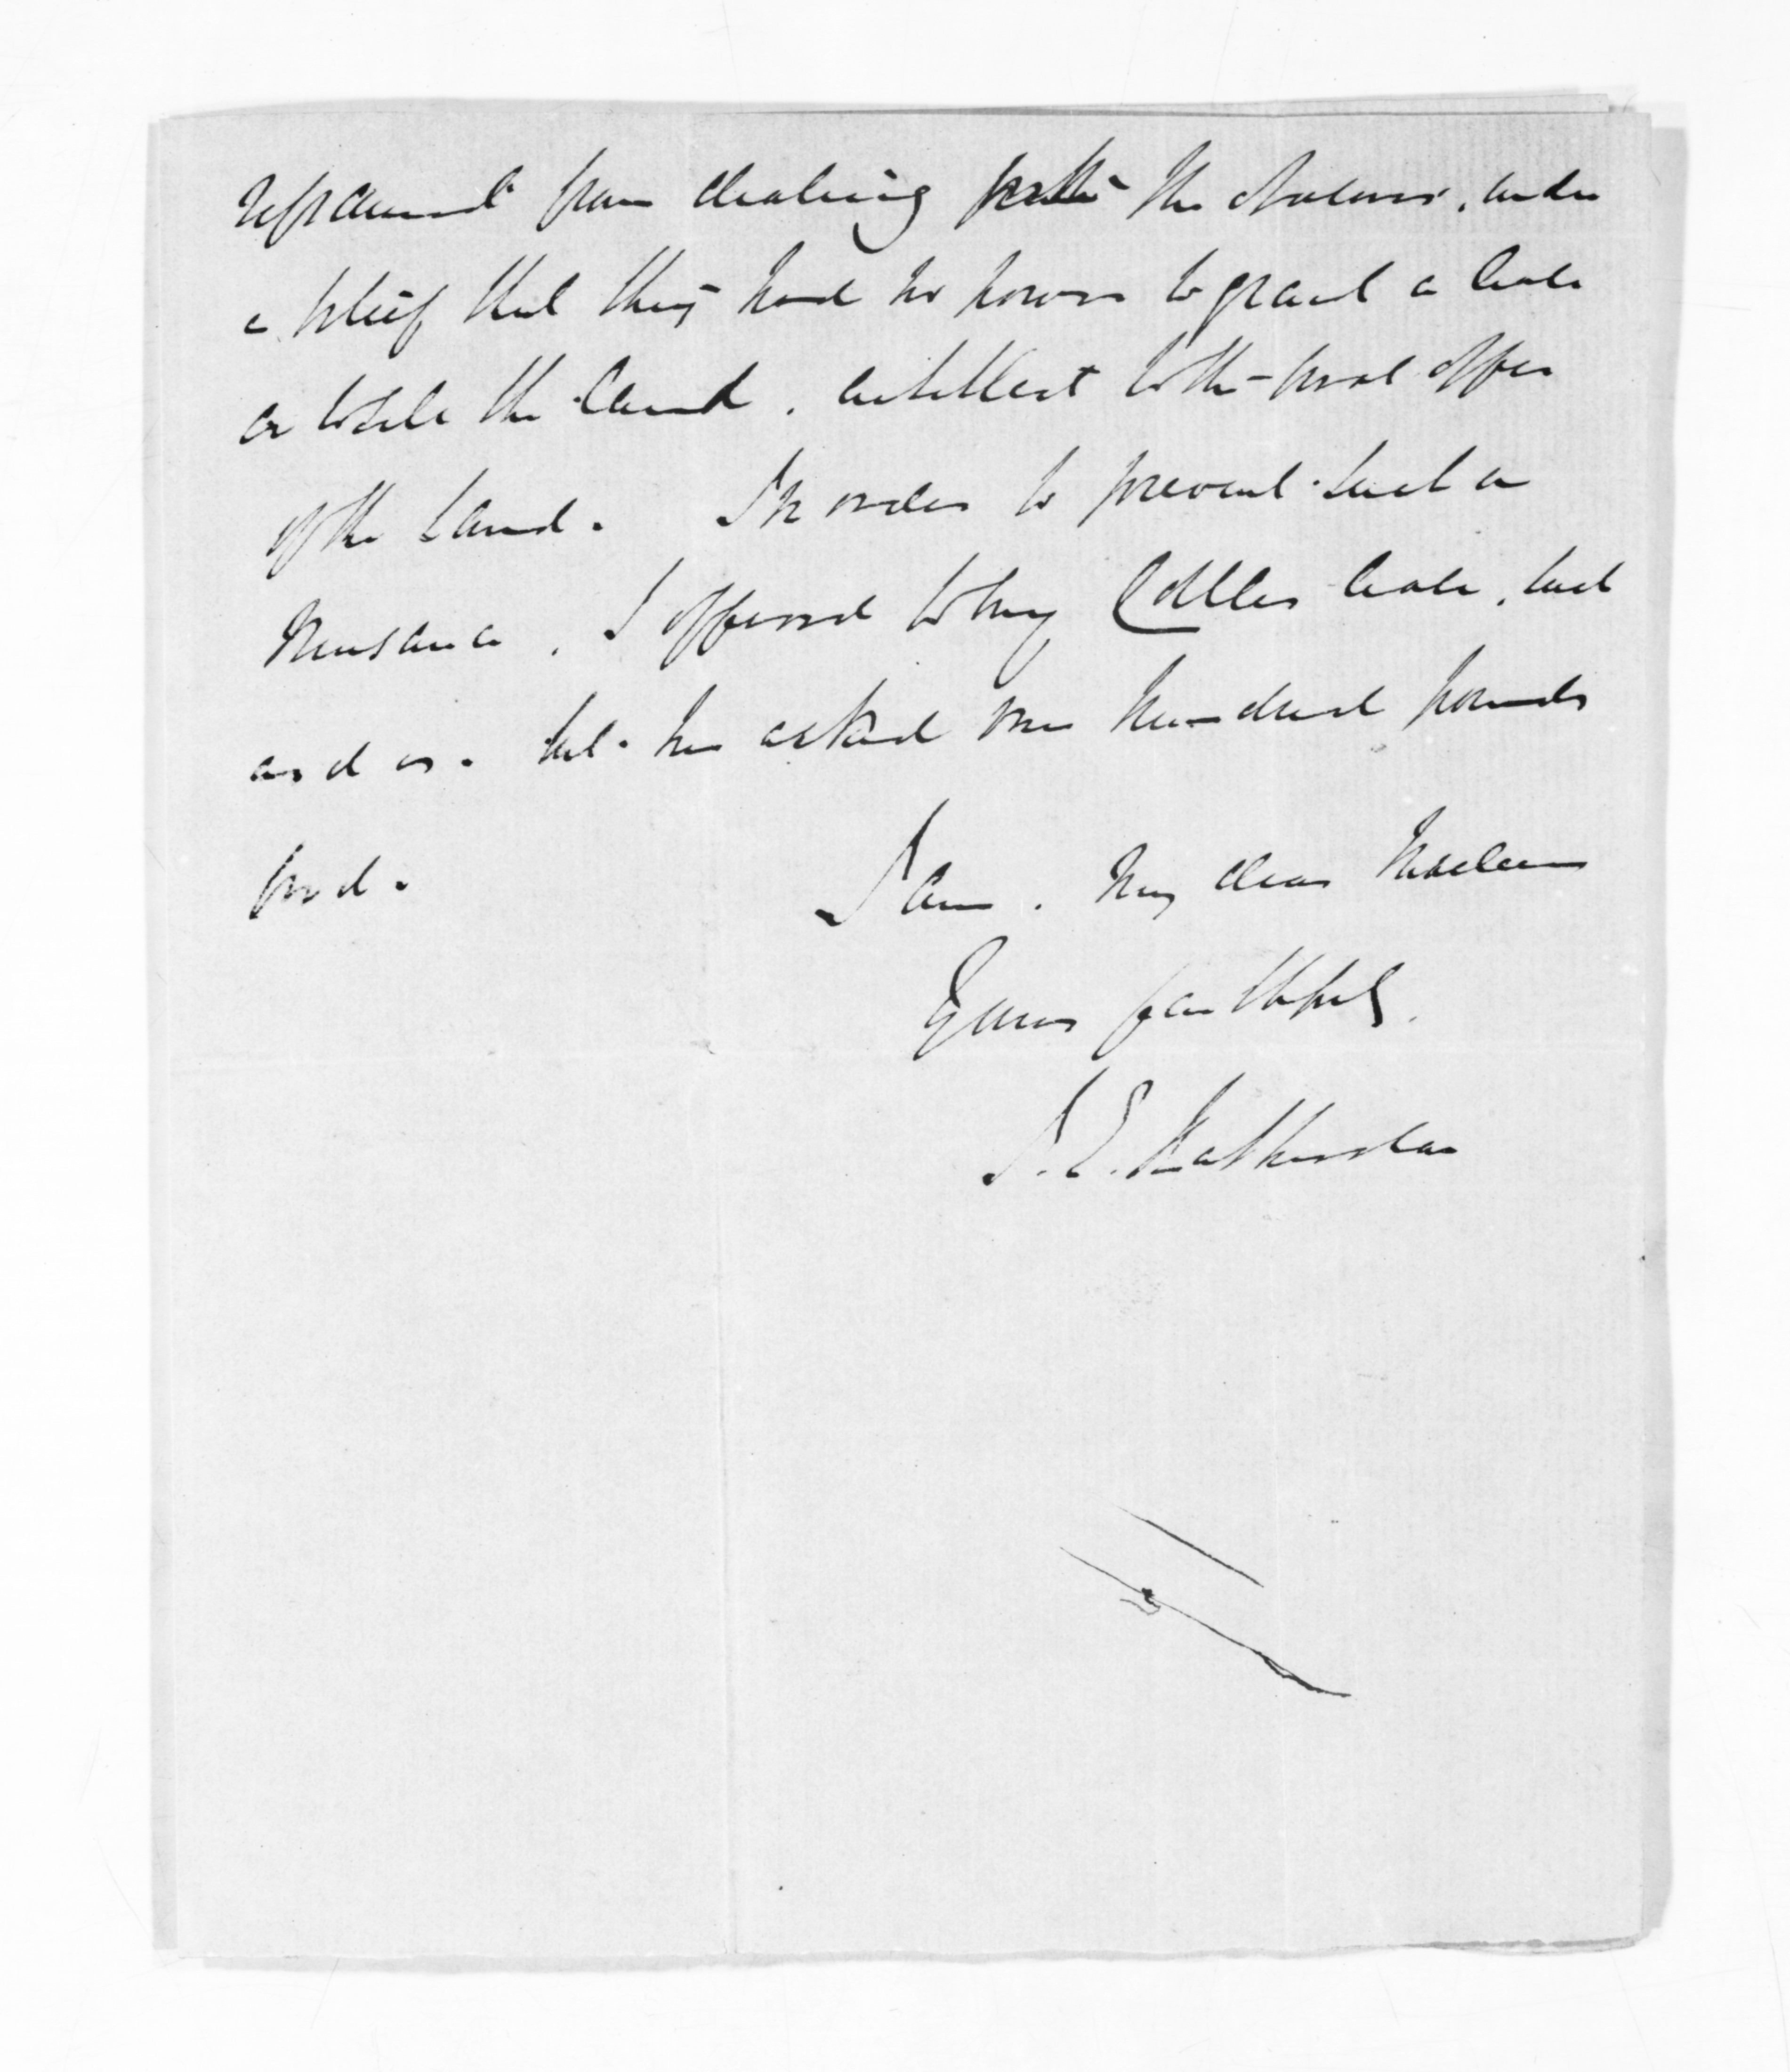 refrained from dealing with the Natives, under
a belief that they had no power to grant a lease
or to sell the land, to the offer
of the Land. In order to prevent such a
nuisance, I offered to buy lease, such
as it is. but he asked one hundred pounds
for it.
I am, my dear McLean
Yours faithfully.